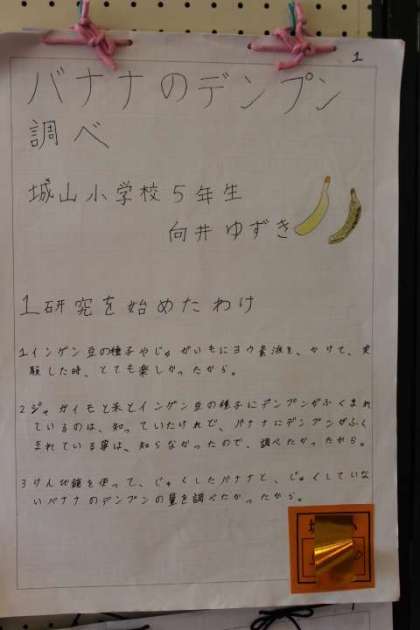 1
バナナのデンプン
調べ
城山小学校5年生
向井ゆずき
1研究を始めたわけ
1インゲン豆の種子やじゃがいもにヨウ素液を、かけて、実
験した時、とても楽しかったから。
2ジャガイモと米とインゲン豆の種子にデンプンがふくまれ
ているのは、知っていたけれど、バナナにデンプンがふく
まれている事は、知らなかったので、調べたかったから。
3けんび鏡を使って、じゅくしたバナナと、じゅくしていな
いバナナのデンプンの量を調べたかったから。